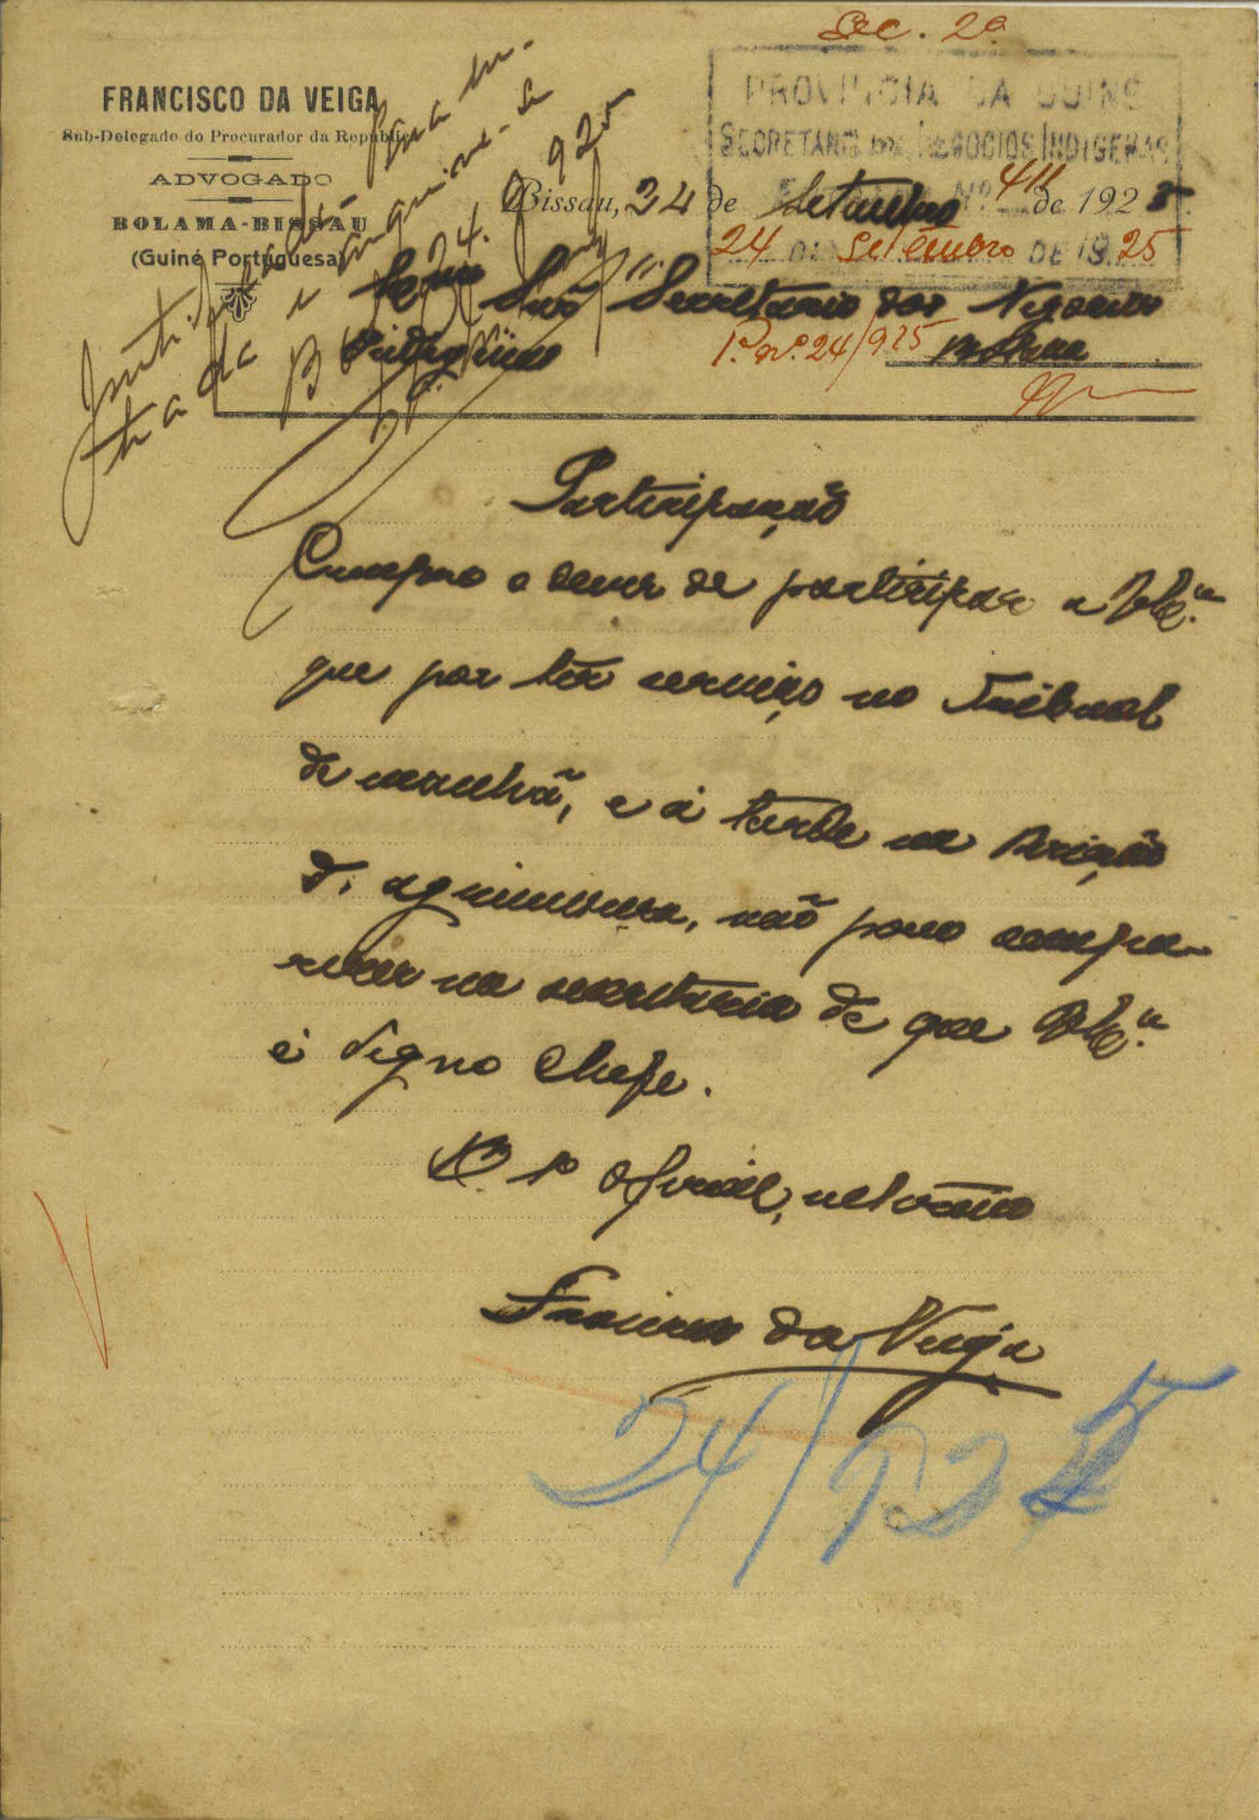 Sec. 2ª
FRANCISCO DA VEIGA
Sub-Delegado do Procurador da Republica
ADVOGADO
BOLAMA-BISSAU
(Guiné Portuguesa)
PROVINCIA DA GUINÉ
SECRETARIA DOS NEGOCIOS INDIGENAS
Nº 411
24 DE Setembro DE 1925
Bissau, 24 de Setembro de 1925
Exmo Snr Secretario dos Negocios
Indigenas
Bolama
P. nº. 24/925
24. 9 925
Participação
Cumpro o dever de participar a V. Exª.
que por ter serviço no Tribunal
de manhã, e á tarde na Secção
d'agrimensura, não posso compa-
recer na secretaria de que V. Exª.
é digno Chefe.
O 1º Oficial,
Francisco da Veiga
24/925